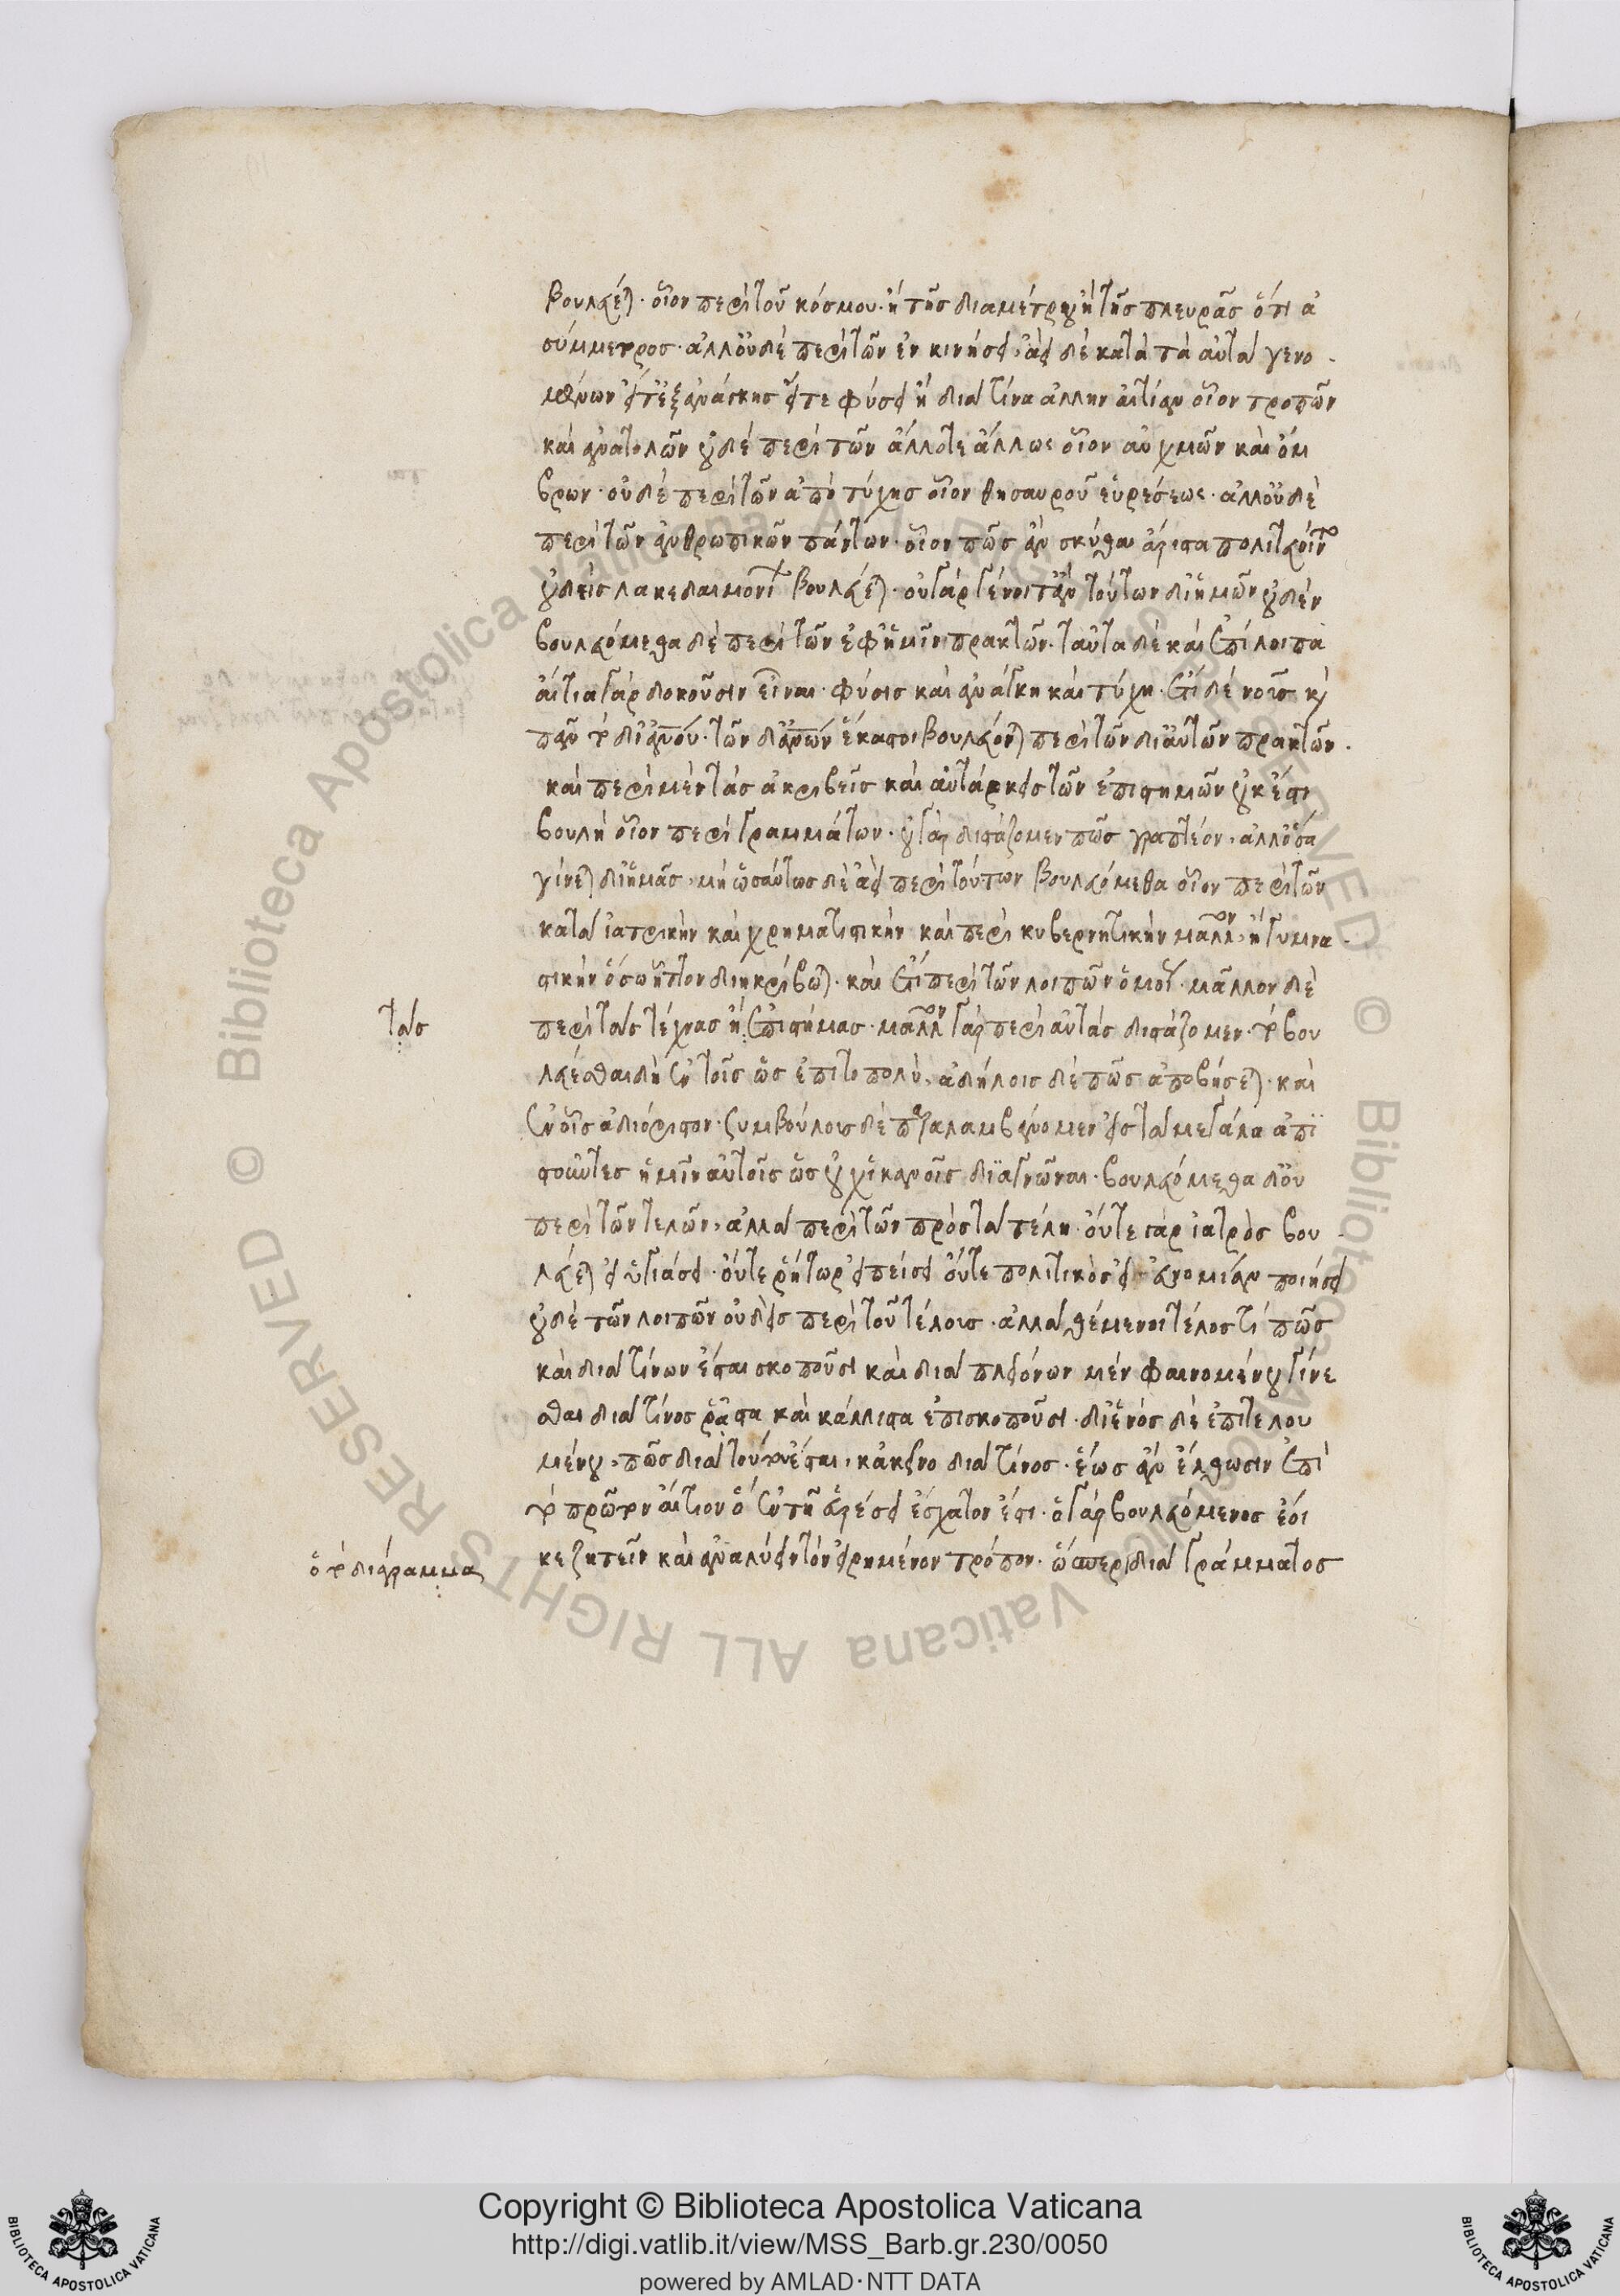 βουλεύεται· οἷον περὶ τοῦ κόσμου· ἢ τῆς διαμέτρου ἢ τῆς πλευρᾶς ὅτι ἀ
σύμμετρος· ἀλλ' οὐδὲ περὶ τῶν ἐν κινήσει, ἀεὶ δὲ κατὰ τὰ αὐτὰ γενο-
μένων εἴτ' ἐξ ἀνάγκης εἴτε φύσει ἢ διά τινα ἄλλην αἰτίαν οἷον τροπῶν
καὶ ἀνατολῶν οὐδὲ περὶ τῶν ἄλλοτε ἄλλως οἷον αὐχμῶν καὶ ὄμ
βρων· οὐδὲ περὶ τῶν ἀπὸ τύχης οἷον θησαυροῦ εὑρέσεως· ἀλλ' οὐδὲ
περὶ τῶν ἀνθρωπικῶν πάντων· οἷον πῶς ἂν σκύθαι ἄριστα πολιτεύοιντο
οὐδεὶς λακεδαιμονίων βουλεύεται· οὐ γὰρ γένοιτ' ἂν τούτων δι' ἡμῶν οὐδέν
βουλευόμεθα δὲ περὶ τῶν ἐφ' ἡμῖν πρακτῶν· ταῦτα δὲ καὶ ἔστι λοιπά
αἴτια γὰρ δοκοῦσιν εἶναι· φύσις καὶ ἀνάγκη καὶ τύχη· ἔτι δὲ νοῦς καὶ
πᾶν τὸ δι' ἀνου· τῶν δ' ἀνων ἕκαστοι βουλεύονται περὶ τῶν δι' αὐτῶν πρακτῶν·
καὶ περὶ μὲν τὰς ἀκριβεῖς καὶ αὐτάρκεις τῶν ἐπιστημῶν οὐκ ἔστι
βουλή οἷον περὶ γραμμάτων· οὐ γὰρ διστάζομεν πῶς γραπτέον, ἀλλ' ὅσα
γίνεται δι' ἡμᾶς, μὴ ὡσαύτως δὲ ἀεὶ περὶ τούτων βουλευόμεθα οἷον περὶ τῶν
κατὰ ἰατρικὴν καὶ χρηματιστικήν καὶ περὶ κυβερνητικὴν μᾶλλον, ἢ γυμνα-
στικὴν ὅσῳ ἧττον διηκρίβωται· καὶ ἔτι περὶ τῶν λοιπῶν ὁμοίως· μᾶλλον δὲ
περὶ τὰς τέχνας ἢ ἐπιστήμας· μᾶλλον γὰρ περὶ αὐτὰς διστάζομεν· τὸ βου
λεύεσθαι δὴ ἐν τοῖς ὡς ἐπιτοπολύ, ἀδήλοις δὲ πῶς ἀποβήσεται· καὶ
ἐν οἷς ἀδιόριστον· ξυμβούλους δὲ παραλαμβάνομεν εἰς τὰ μεγάλα ἀπι
στοῦντες ἡμῖν αὐτοῖς ὡς οὐχ ἱκανοῖς διαγνῶναι· βουλευόμεθα δ' οὐ
περὶ τῶν τελῶν, ἀλλὰ περὶ τῶν πρὸς τὰ τέλη· οὔτε γὰρ ἰατρὸς βου-
λεύεται εἰ ὑγιάσει· οὔτε ῥήτωρ εἰ πείσει οὔτε πολιτικὸς εἰ εὐνομίαν ποιήσει
οὐδὲ τῶν λοιπῶν οὐδεὶς περὶ τοῦ τέλους· ἀλλὰ θέμενοι τέλος τί πῶς
καὶ διὰ τίνων ἔσται σκοποῦσι καὶ διὰ πλειόνων μὲν φαινομένου γίνε
σθαι διὰ τίνος ῥᾷστα καὶ κάλλιστα ἐπισκοποῦσι· δι' ἑνὸς δὲ ἐπιτελου
μένου, πῶς διὰ τούτου ἔσται, κἀκεῖνο διὰ τίνος· ἕως ἂν ἔλθωσιν ἐπὶ
τὸ πρῶτον αἴτιον ὃ ἐν τῇ εὑρέσει ἔσχατον ἐστι· ὁ γὰρ βουλευόμενος ἔοι
κε ζητεῖν καὶ ἀναλύειν τὸν εἰρημένον τρόπον· ὥσπερ διὰ γράμματος
τὰς
ὁ τὸ διάγραμμα
Copyright © Biblioteca Apostolica Vaticana
http://digi.vatlib.it/view/MSS_Barb.gr.230/0050
powered by AMLAD·NTT DATA
BIBLIOTECA APOSTOLICA VATICANA
BIBLIOTECA APOSTOLICA VATICANA
© Biblioteca Apostolica Vaticana ALL RIGHTS RESERVED © Biblioteca Apostolica Vaticana ALL RIGHTS RESERVED